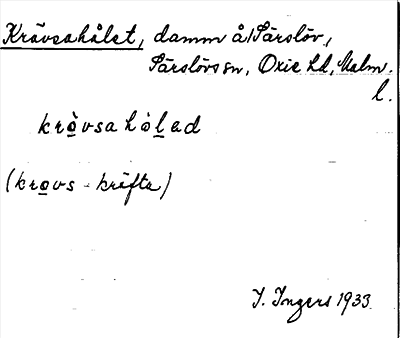 Krävsahålet, damm å/Särslöv,
Särslövs sn, Oxie hd, Malm.
l.
kròvsahòlad
(krovs - kräfta)
I. Ingers 1933.